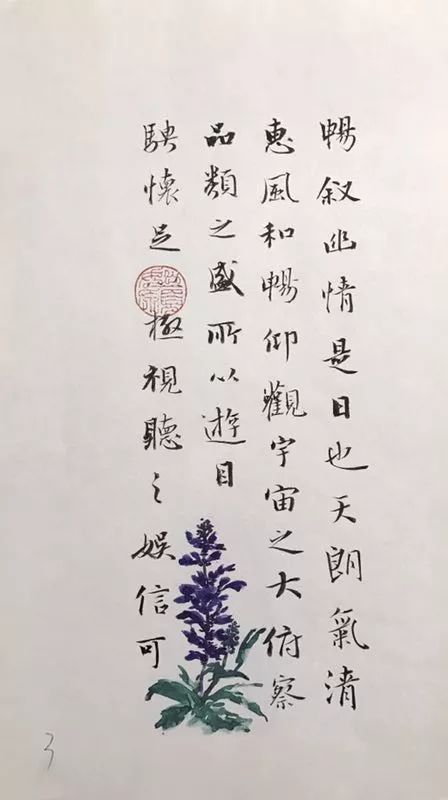 暢叙幽情是日也天朗氣清
惠風和暢仰觀宇宙之大俯察
品類之盛所以遊目
騁懷足極視聽之娛信可
3